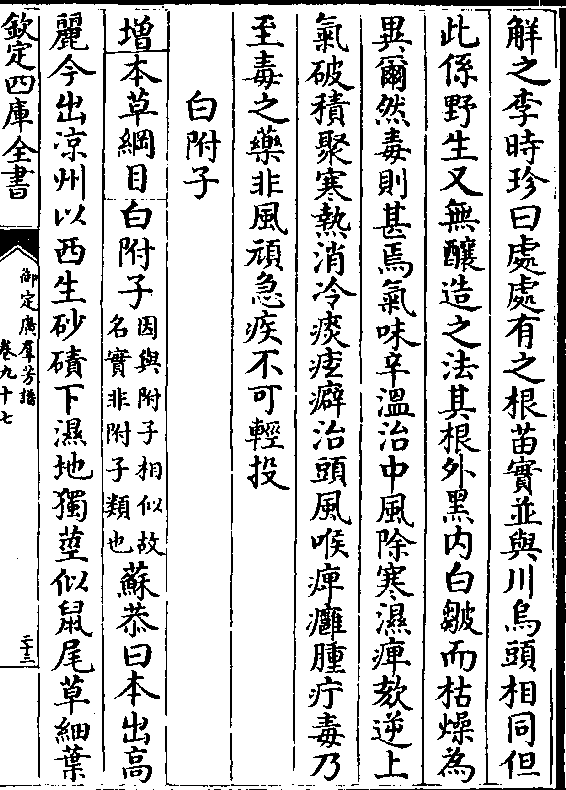 解之李時珍曰處處有之根苗實並與川烏頭相同但
此係野生又無釀造之法其根外黑内白皺而枯燥為
異爾然毒則甚焉氣味辛溫治中風除寒濕痺欬逆上
氣破積聚寒熱消冷痰疰癖治頭風喉痺癰腫疔毒乃
至毒之藥非風頑急疾不可輕投
白附子
增本草綱目白附子因與附子相似故名實非附子類也蘇恭曰本出高
麗今出凉州以西生砂磧下濕地獨莖似鼠尾草細葉
欽定四庫全書
御定廣羣芳譜
卷九十七
二十三